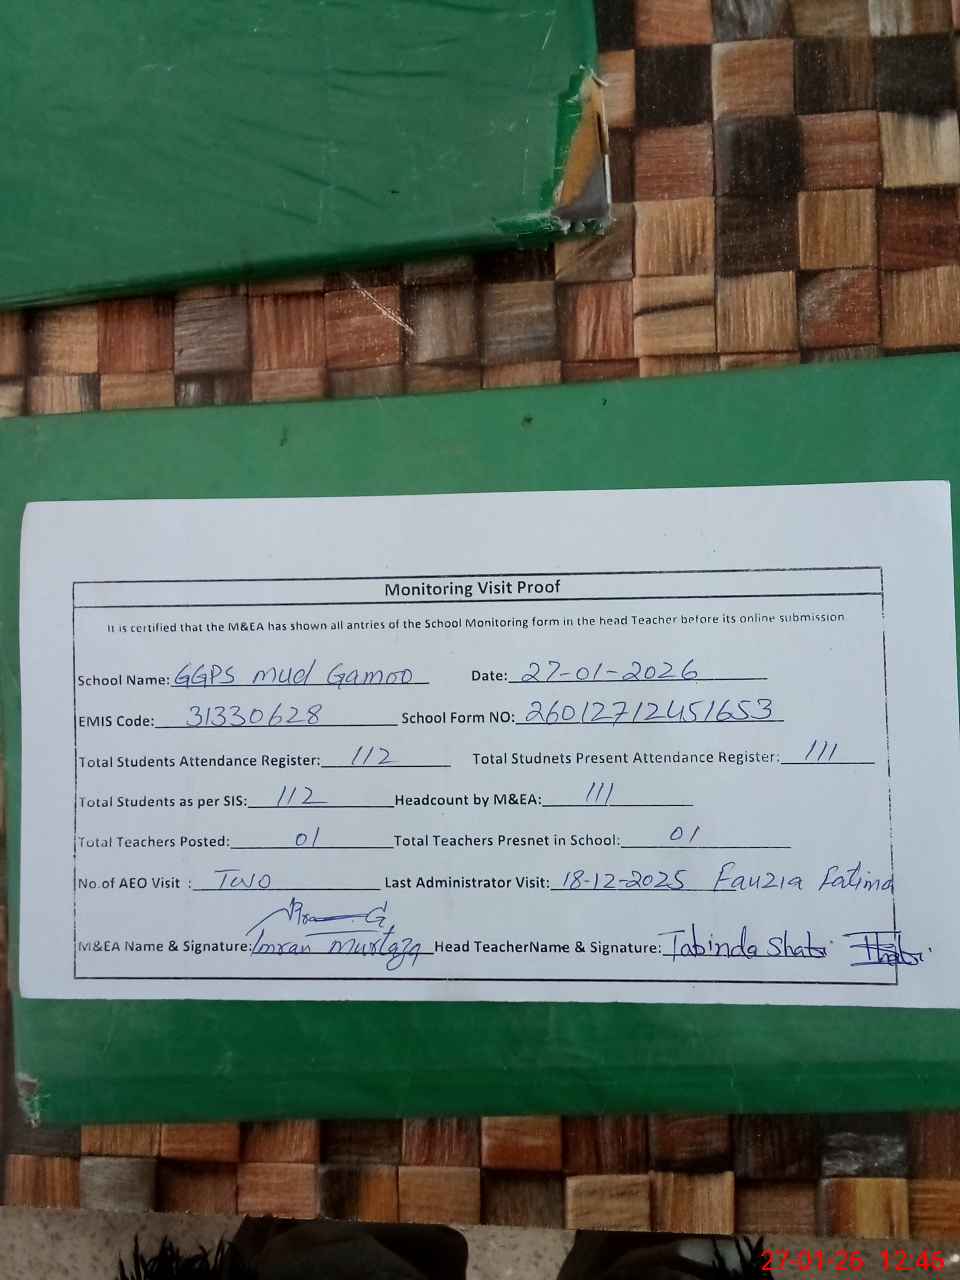 Monitoring Visit Proof
It is certified that the M&EA has shown all antries of the School Monitoring form in the head Teacher before its online submission
School Name: GGPS mud Gamoo Date: 27-01-2026
EMIS Code: 31330628 School Form NO: 26012712451653
Total Students Attendance Register: 112 Total Studnets Present Attendance Register: 111
Total Students as per SIS: 112 Headcount by M&EA: 111
Total Teachers Posted: 01 Total Teachers Presnet in School: 01
No.of AEO Visit : Two Last Administrator Visit: 18-12-2025 Fauzia Fatima
M&EA Name & Signature: Imran Murtaza Head TeacherName & Signature: Tabinda
27-01-26 12:46